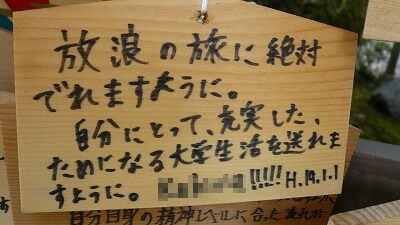 放浪の旅に絶対
でれますように。
自分にとって、充実した、
ためになる大学生活を送れま
すように。 !!!!! H.19.1.1
自分自身の精神レベルに合った